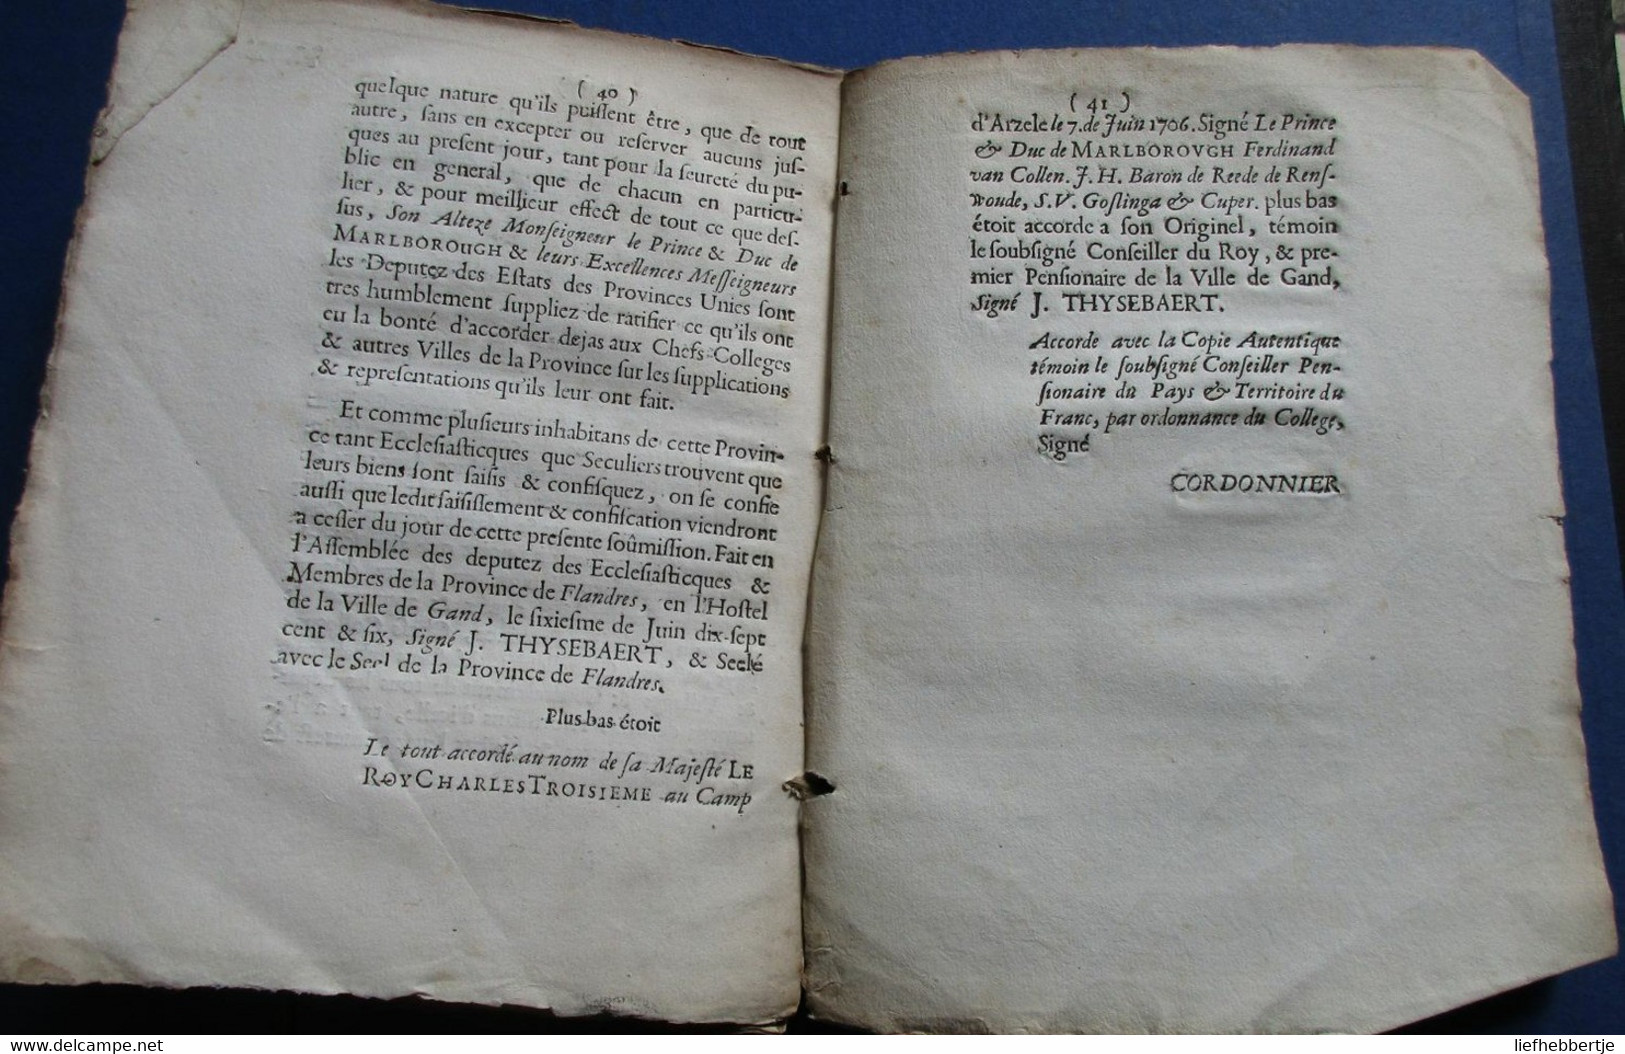 ( 40 )
quelque nature qu'ils puiſſent être, que de tout
autre, ſans en excepter ou reſerver aucuns juſ-
ques au preſent jour, tant pour la ſeureté du pu-
blic en general, que de chacun en particu-
lier, & pour meilleur effect de tout ce que deſ-
ſus, Son Alteze Monſeigneur le Prince & Duc de
MARLBOROUGH & leurs Excellences Meſſeigneurs
les Deputez des Eſtats des Provinces Unies ſont
tres humblement ſuppliez de ratifier ce qu'ils ont
eu la bonté d'accorder dejas aux Chefs-Colleges
& autres Villes de la Province ſur les ſupplications
& repreſentations qu'ils leur ont fait.
Et comme pluſieurs inhabitans de cette Provin-
ce tant Eccleſiaſticques que Seculiers trouvent que
leurs biens ſont ſaiſis & confiſquez, on ſe confie
auſſi que ledit ſaiſiſſement & confiſcation viendront
a ceſſer du jour de cette preſente ſoûmiſſion. Fait en
l'Aſſemblée des deputez des Eccleſiaſticques &
Membres de la Province de Flandres, en l'Hoſtel
de la Ville de Gand, le ſixieſme de Juin dix-ſept
cent & ſix, Signé J. THYSEBAERT, & Seelé
avec le Seel de la Province de Flandres.
Plus bas étoit
Le tout accordé au nom de ſa Majeſté LE
ROY CHARLES TROISIEME au Camp
( 41 )
d'Arzele le 7. de Juin 1706. Signé Le Prince
& Duc de MARLBOROVGH Ferdinand
van Collen. J. H. Baron de Reede de Renſ-
woude, S. V. Goſlinga & Cuper. plus bas
étoit accorde a ſon Originel, témoin
le ſoubſigné Conſeiller du Roy, & pre-
mier Penſionaire de la Ville de Gand,
Signé J. THYSEBAERT.
Accorde avec la Copie Autentique
témoin le ſoubſigné Conſeiller Pen-
ſionaire du Pays & Territoire du
Franc, par ordonnance du College,
Signé
CORDONNIER
delcampe.net
liefhebbertje